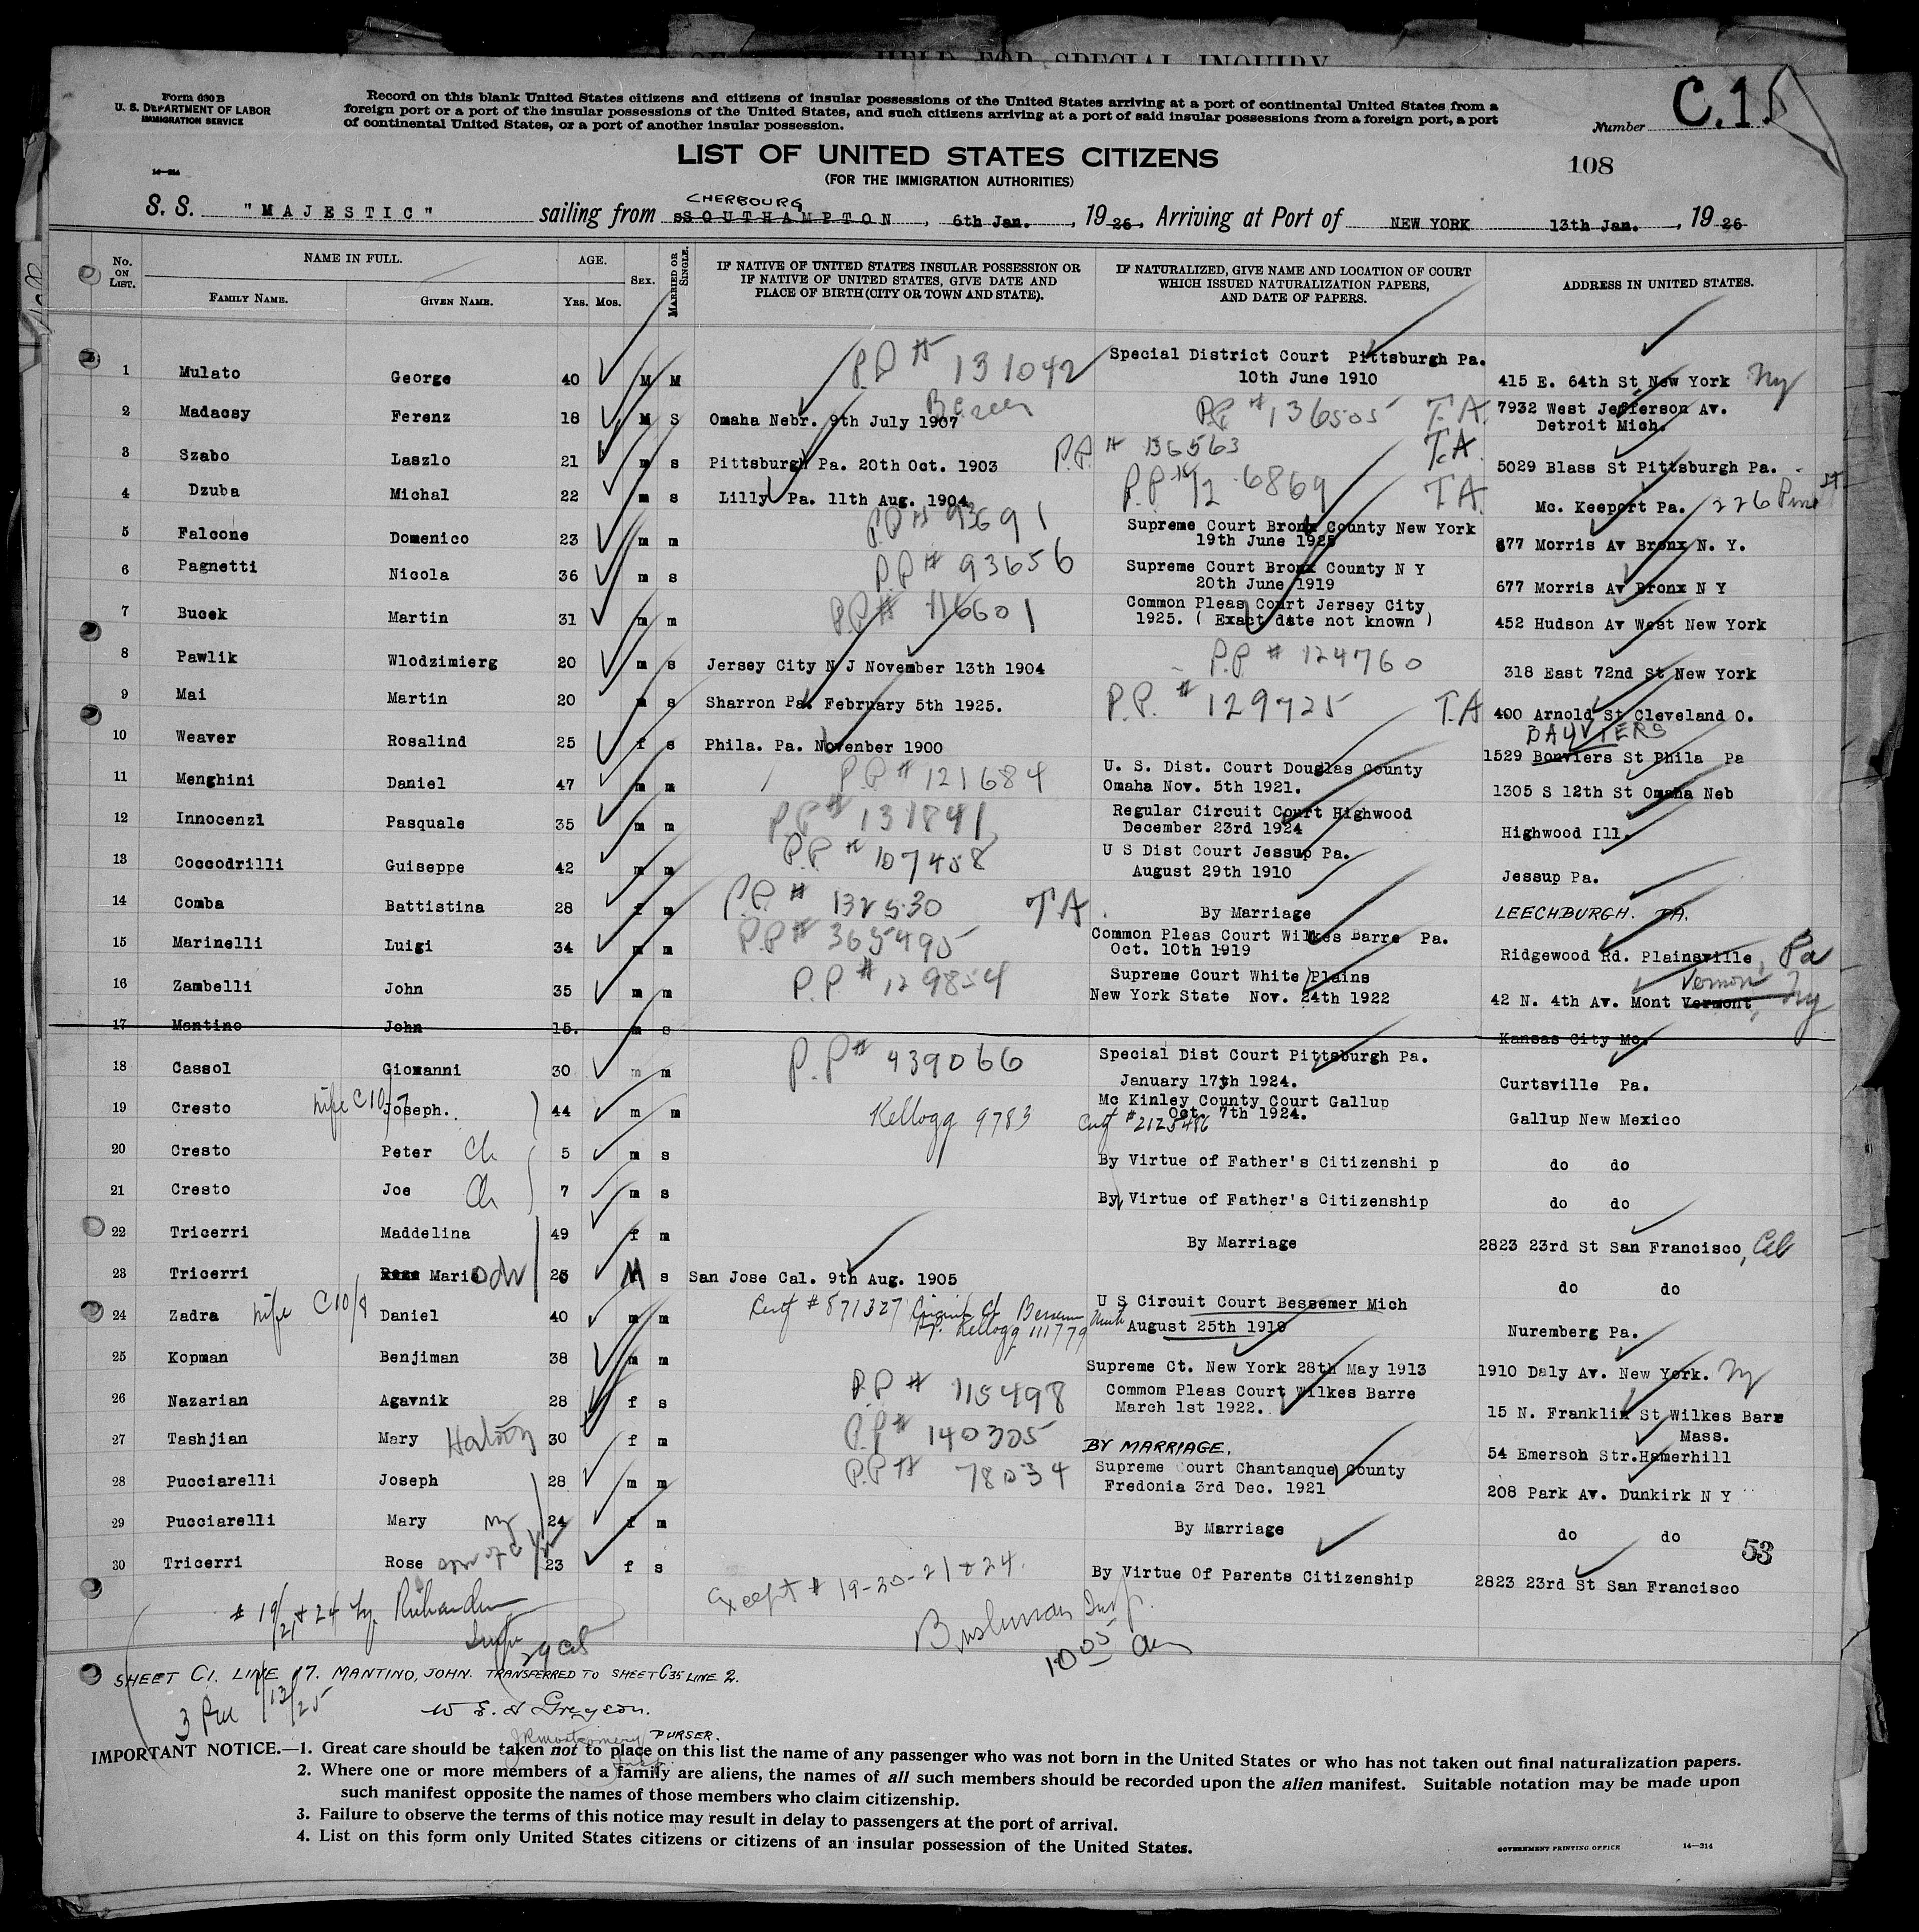 HELD FOR SPECIAL INQUIRY
Form 630 B
U. S. DEPARTMENT OF LABOR
IMMIGRATION SERVICE
14—214
Record on this blank United States citizens and citizens of insular possessions of the United States arriving at a port of continental United States from a
foreign port or a port of the insular possessions of the United States, and such citizens arriving at a port of said insular possessions from a foreign port, a port
of continental United States, or a port of another insular possession.
Number C.1.
LIST OF UNITED STATES CITIZENS
(FOR THE IMMIGRATION AUTHORITIES)
108
CHERBOURG
S. S. "MAJESTIC" sailing from SOUTHAMPTON, 6th Jan., 1926, Arriving at Port of NEW YORK 13th Jan., 1926
No. ON LIST. NAME IN FULL. FAMILY NAME. GIVEN NAME. AGE. YRS. MOS. SEX. MARRIED OR SINGLE. IF NATIVE OF UNITED STATES INSULAR POSSESSION OR IF NATIVE OF UNITED STATES, GIVE DATE AND PLACE OF BIRTH (CITY OR TOWN AND STATE). IF NATURALIZED, GIVE NAME AND LOCATION OF COURT WHICH ISSUED NATURALIZATION PAPERS, AND DATE OF PAPERS. ADDRESS IN UNITED STATES.
1 Mulato George 40 M M P.P # 131042 Special District Court Pittsburgh Pa. 10th June 1910 415 E. 64th St New York Ny
2 Madacsy Ferenz 18 M S Omaha Nebr. 9th July 1907 P.P # 136505 T.A. 7932 West Jefferson Av. Detroit Mich.
3 Szabo Laszlo 21 m s Pittsburgh Pa. 20th Oct. 1903 P.P. # 136563 T.A. 5029 Blass St Pittsburgh Pa.
4 Dzuba Michal 22 m s Lilly Pa. 11th Aug. 1904 P.P. # 126869 T A Mc. Keeport Pa. 226 Pine St
5 Falcone Domenico 23 m m P.P # 93691 Supreme Court Bronx County New York 19th June 1925 677 Morris Av Bronx N. Y.
6 Pagnetti Nicola 36 m s P.P # 93656 Supreme Court Bronx County N Y 20th June 1919 677 Morris Av Bronx N Y
7 Bucek Martin 31 m m P.P # 116601 Common Pleas Court Jersey City 1925. ( Exact date not known ) 452 Hudson Av West New York
8 Pawlik Wlodzimierg 20 m s Jersey City N J November 13th 1904 P.P # 124760 318 East 72nd St New York
9 Mai Martin 20 m s Sharron Pa. February 5th 1925. P.P. # 129725 T.A 400 Arnold St Cleveland O.
BAUVIERS
10 Weaver Rosalind 25 f s Phila. Pa. Novenber 1900 1529 Bonviers St Phila Pa
11 Menghini Daniel 47 m m P.P # 121684 U. S. Dist. Court Douglas County Omaha Nov. 5th 1921. 1305 S 12th St Omaha Neb
12 Innocenzi Pasquale 35 m m P.P # 131841 Regular Circuit Court Highwood December 23rd 1924 Highwood Ill.
13 Coccodrilli Guiseppe 42 m m P.P # 107458 U S Dist Court Jessup Pa. August 29th 1910 Jessup Pa.
14 Comba Battistina 28 f m P.P. # 132530 T A. By Marriage LEECHBURGH. PA.
15 Marinelli Luigi 34 m m P.P # 365495 Common Pleas Court Wilkes Barre Pa. Oct. 10th 1919 Ridgewood Rd. Plainsville, Pa
16 Zambelli John 35 m m P.P # 129854 Supreme Court White Plains New York State Nov. 24th 1922 42 N. 4th Av. Mont Vermont Vernon Ny
17 Mantino John 15. m s Kansas City Mo.
18 Cassol Giomanni 30 m m P.P # 439066 Special Dist Court Pittsburgh Pa. January 17th 1924. Curtsville Pa.
19 Cresto wife C10/7 Joseph. 44 m m Kellogg 9783 Mc Kinley County Court Gallup Oct. 7th 1924. Cert # 2125486 Gallup New Mexico
20 Cresto Peter Ch 5 m s By Virtue of Father's Citizenshi p do do
21 Cresto Joe Ch 7 m s By Virtue of Father's Citizenship do do
22 Tricerri Maddelina 49 f m By Marriage 2823 23rd St San Francisco, Cal
23 Tricerri Mario 25 M s San Jose Cal. 9th Aug. 1905 do do
24 Zadra wife C10/8 Daniel 40 m m Cert # 871327 Circuit Ct Bessemer Mich Kellogg 111779 U S Circuit Court Bessemer Mich August 25th 1919 Nuremberg Pa.
25 Kopman Benjiman 38 m m Supreme Ct. New York 28th May 1913 1910 Daly Av. New York. Ny
26 Nazarian Agavnik 28 f s P.P # 115498 Commom Pleas Court Wilkes Barre March 1st 1922. 15 N. Franklin St Wilkes Barre
27 Tashjian Mary 30 f m P.P # 140305 BY MARRIAGE. 54 Emerson Str. Hamerhill Mass.
28 Pucciarelli Joseph 28 m m P.P # 78034 Supreme Court Chantanque County Fredonia 3rd Dec. 1921 208 Park Av. Dunkirk N Y
29 Pucciarelli Mary 24 f m By Marriage do do
53
30 Tricerri Rose 23 f s By Virtue Of Parents Citizenship 2823 23rd St San Francisco
Except # 19-20-21 & 24.
# 19/21 & 24 by Richardson
Insp
29 Cit
Bushman Insp.
10 05 am
SHEET C1. LINE 17. MANTINO, JOHN. TRANSFERRED TO SHEET C35 LINE 2.
1/13/25
W E. A Greyson.
PURSER.
JR Montgomery
IMPORTANT NOTICE.—1. Great care should be taken not to place on this list the name of any passenger who was not born in the United States or who has not taken out final naturalization papers.
2. Where one or more members of a family are aliens, the names of all such members should be recorded upon the alien manifest. Suitable notation may be made upon
such manifest opposite the names of those members who claim citizenship.
3. Failure to observe the terms of this notice may result in delay to passengers at the port of arrival.
4. List on this form only United States citizens or citizens of an insular possession of the United States.
GOVERNMENT PRINTING OFFICE 14—214